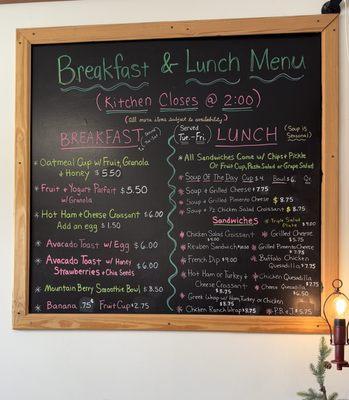 Breakfast & Lunch Menu
(Kitchen Closes @ 2:00)
(all menu items subject to availability)
BREAKFAST
Oatmeal Cup w/ Fruit, Granola
+ Honey $5.50
Fruit + Yogurt Parfait $5.50
w/ Granola
Hot Ham + Cheese Croissant $6.00
Add an egg $1.50
Avocado Toast w/ Egg $6.00
Avocado Toast w/ Honey
Strawberries + Chia Seeds $6.00
Mountain Berry Smoothie Bowl $8.50
Banana .75¢ Fruit Cup $2.75
Served
Tues.-Fri.
LUNCH
(Soup is
Seasonal)
All Sandwiches Come w/ Chips + Pickle
Or Fruit Cup, Pasta Salad or Grape Salad
Soup Of The Day Cup $4 Bowl $6
Soup + Grilled Cheese $7.75
Soup + Grilled Pimento Cheese $8.75
Soup + ½ Chicken Salad Croissant $8.75
Sandwiches
Triple Salad
Plate $9.00
Chicken Salad Croissant
Reuben Sandwich
French Dip $9.00
Hot Ham or Turkey +
Cheese Croissant $8.75
Greek Wrap w/ Ham, Turkey or Chicken
$8.75
Chicken Ranch Wrap $8.75
Grilled Cheese
$5.75
Grilled Pimento Cheese
$7.75
Buffalo Chicken
Quesadilla $7.75
Chicken Quesadilla
$7.75
Cheese Quesadilla
$6.50
P.B. + J $5.75